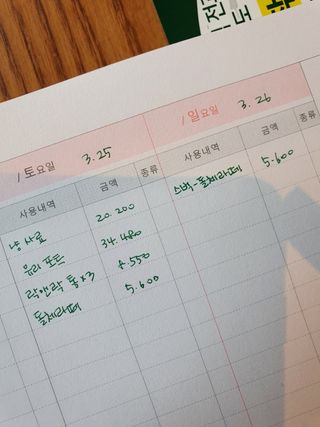 / 토요일 3.25
/ 일요일 3.26
사용내역 금액 종류
사용내역 금액 종류
냥 사료 20.200
유리 포트 34.480
락앤락 통×3 8.550
돌체라떼 5.600
스벅-돌체라떼 5.600